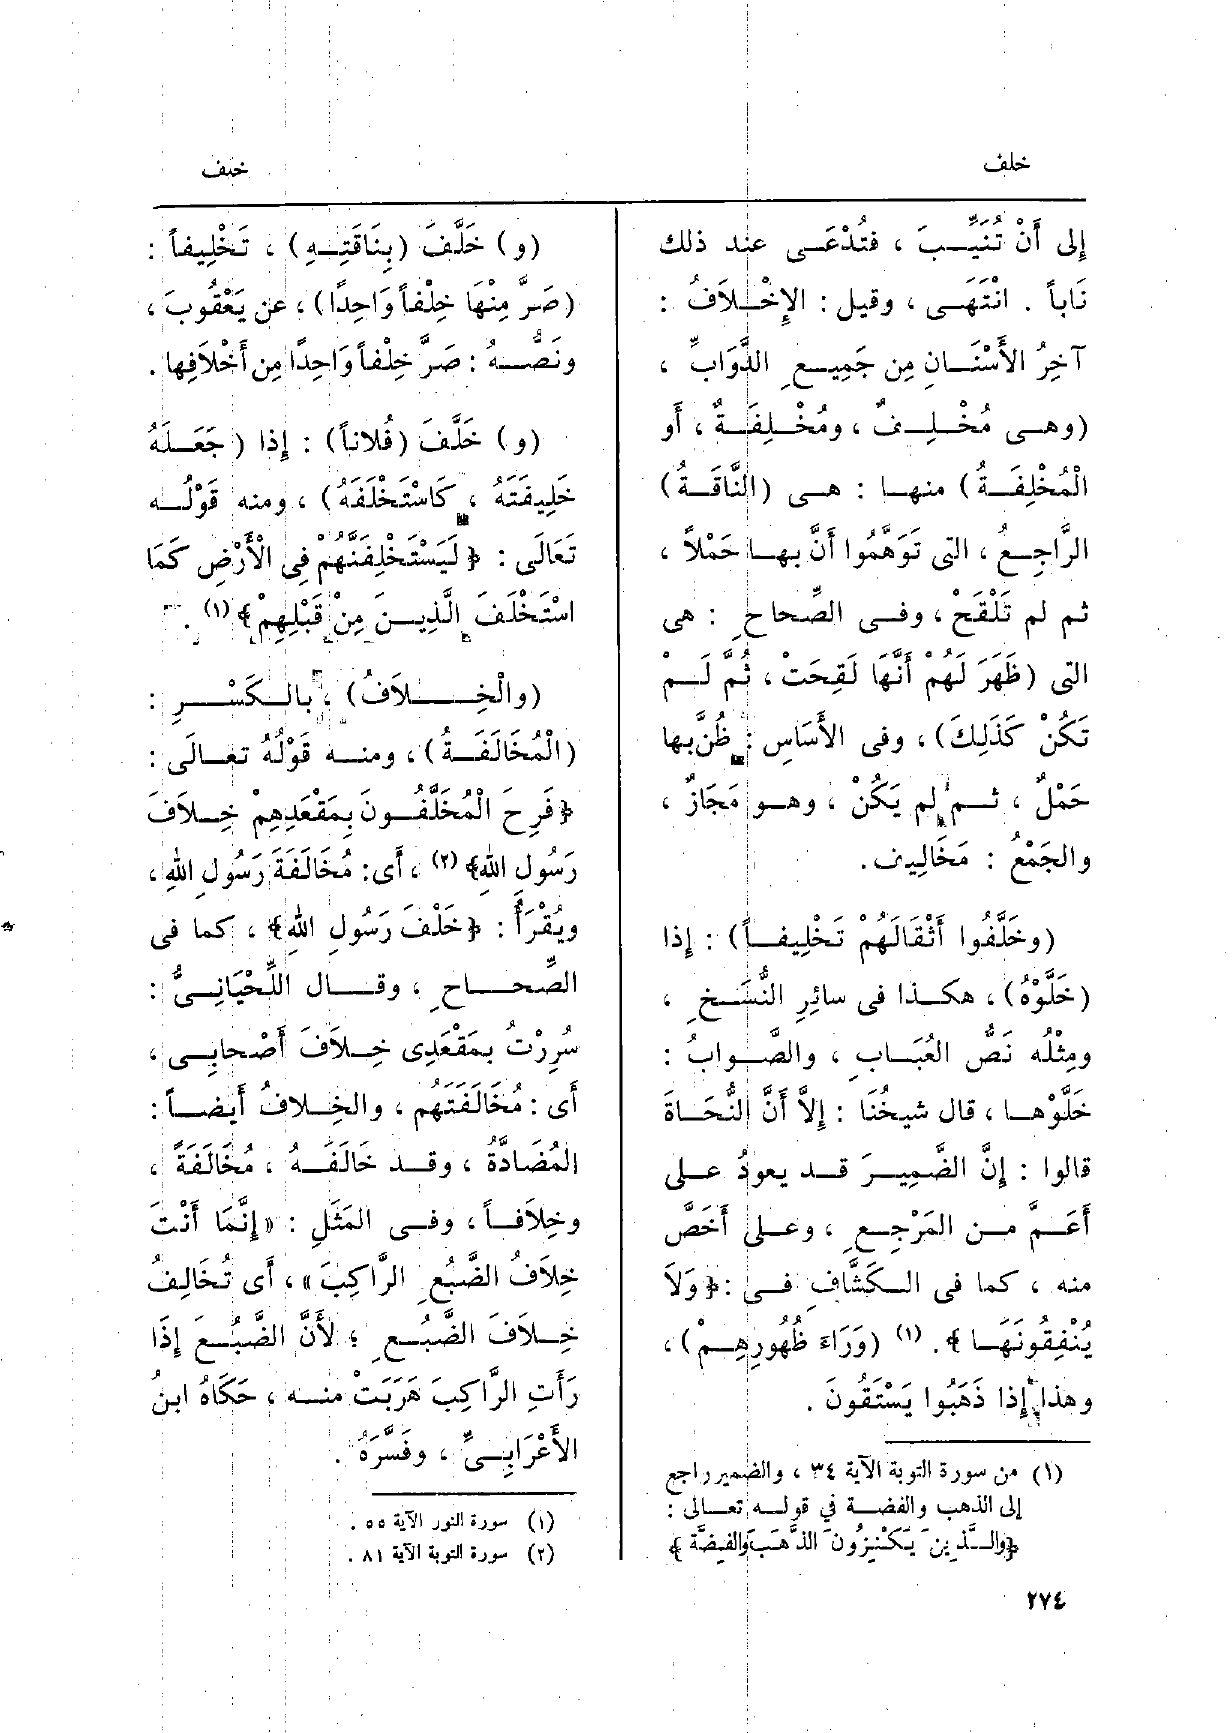 خلف
خلف
إلى أَنْ تُنَيِّبَ ، فتُدْعَى عند ذلك
نَاباً . انْتَهَى ، وقيل : الإِخْلَافُ :
آخِرُ الأَسْنَانِ مِن جَمِيعِ الدَّوَابِّ ،
(وهى مُخْلِفٌ ، ومُخْلِفَةٌ ، أَو
الْمُخْلِفَةُ) منها : هى (النَّاقَةُ)
الرَّاجِعُ ، التى تَوَهَّمُوا أَنَّ بها حَمْلاً ،
ثم لم تَلْقَحْ ، وفى الصِّحاحِ : هى
التى (ظَهَرَ لَهُمْ أَنَّهَا لَقِحَتْ ، ثُمَّ لَمْ
تَكُنْ كَذَلِكَ) ، وفى الأَسَاسِ : ظُنَّ بها
حَمْلٌ ، ثم لم يَكُنْ ، وهو مَجَازٌ ،
والجَمْعُ : مَخَالِيف .
(وخَلَّفُوا أَثْقَالَهُمْ تَخْلِيفاً) : إذا
(خَلَّوْهُ) ، هكذا فى سائِرِ النُّسَخِ ،
ومِثْلُه نَصُّ العُبَابِ ، والصَّوابُ :
خَلَّوْها ، قال شيخُنَا : إِلاَّ أَنَّ النُّحَاةَ
قالوا : إِنَّ الضَّمِيرَ قد يعودُ على
أَعَمَّ من المَرْجِعِ ، وعلى أَخَصَّ
منه ، كما فى الكَشَّافِ فى : ﴿وَلَا
يُنْفِقُونَهَا﴾ . (١) (وَرَاءَ ظُهُورِهِمْ) ،
وهذا إِذا ذَهَبُوا يَسْتَقُونَ .
(١) من سورة التوبة الآية ٣٤ ، والضمير راجع
إلى الذهب والفضة في قوله تعالى :
﴿والَّذِينَ يَكْنِزُونَ الذَّهَبَ والفِضَّةَ﴾
(و) خَلَّفَ (بِنَاقَتِهِ) ، تَخْلِيفاً :
(صَرَّ مِنْهَا خِلْفاً وَاحِدًا) ، عن يَعْقُوبَ ،
ونَصُّهُ : صَرَّ خِلْفاً وَاحِدًا مِن أَخْلَافِها .
(و) خَلَّفَ (فُلَاناً) : إِذا (جَعَلَهُ
خَلِيفَتَهُ ، كَاسْتَخْلَفَهُ) ، ومنه قَوْلُه
تَعَالَى : ﴿لَيَسْتَخْلِفَنَّهُمْ فِى الْأَرْضِ كَمَا
اسْتَخْلَفَ الَّذِينَ مِنْ قَبْلِهِمْ﴾ (١) .
(والْخِلَافُ) ، بالكَسْرِ :
(الْمُخَالَفَةُ) ، ومنه قَوْلُهُ تعالَى :
﴿فَرِحَ الْمُخَلَّفُونَ بِمَقْعَدِهِمْ خِلَافَ
رَسُولِ اللهِ﴾ (٢) ، أَى : مُخَالَفَةَ رَسُولِ اللهِ ،
ويُقْرَأُ : ﴿خَلْفَ رَسُولِ اللهِ﴾ ، كما فى
الصِّحاحِ ، وقال اللِّحْيَانِىُّ :
سُرِرْتُ بمَقْعَدِى خِلَافَ أَصْحابِى ،
أَى : مُخَالَفَتَهُم ، والخِلافُ أَيضاً :
المُضَادَّةُ ، وقد خالَفَهُ ، مُخَالَفَةً ،
وخِلَافاً ، وفى المَثَلِ : «إِنَّمَا أَنْتَ
خِلَافُ الضَّبُعِ الرَّاكِبَ» ، أَى تُخَالِفُ
خِلَافَ الضَّبُعِ ؛ لأَنَّ الضَّبُعَ إِذَا
رَأَتِ الرَّاكِبَ هَرَبَتْ منه ، حَكَاهُ ابنُ
الأَعْرَابِىِّ ، وفَسَّرَهُ .
(١) سورة النور الآية ٥٥ .
(٢) سورة التوبة الآية ٨١ .
٢٧٤